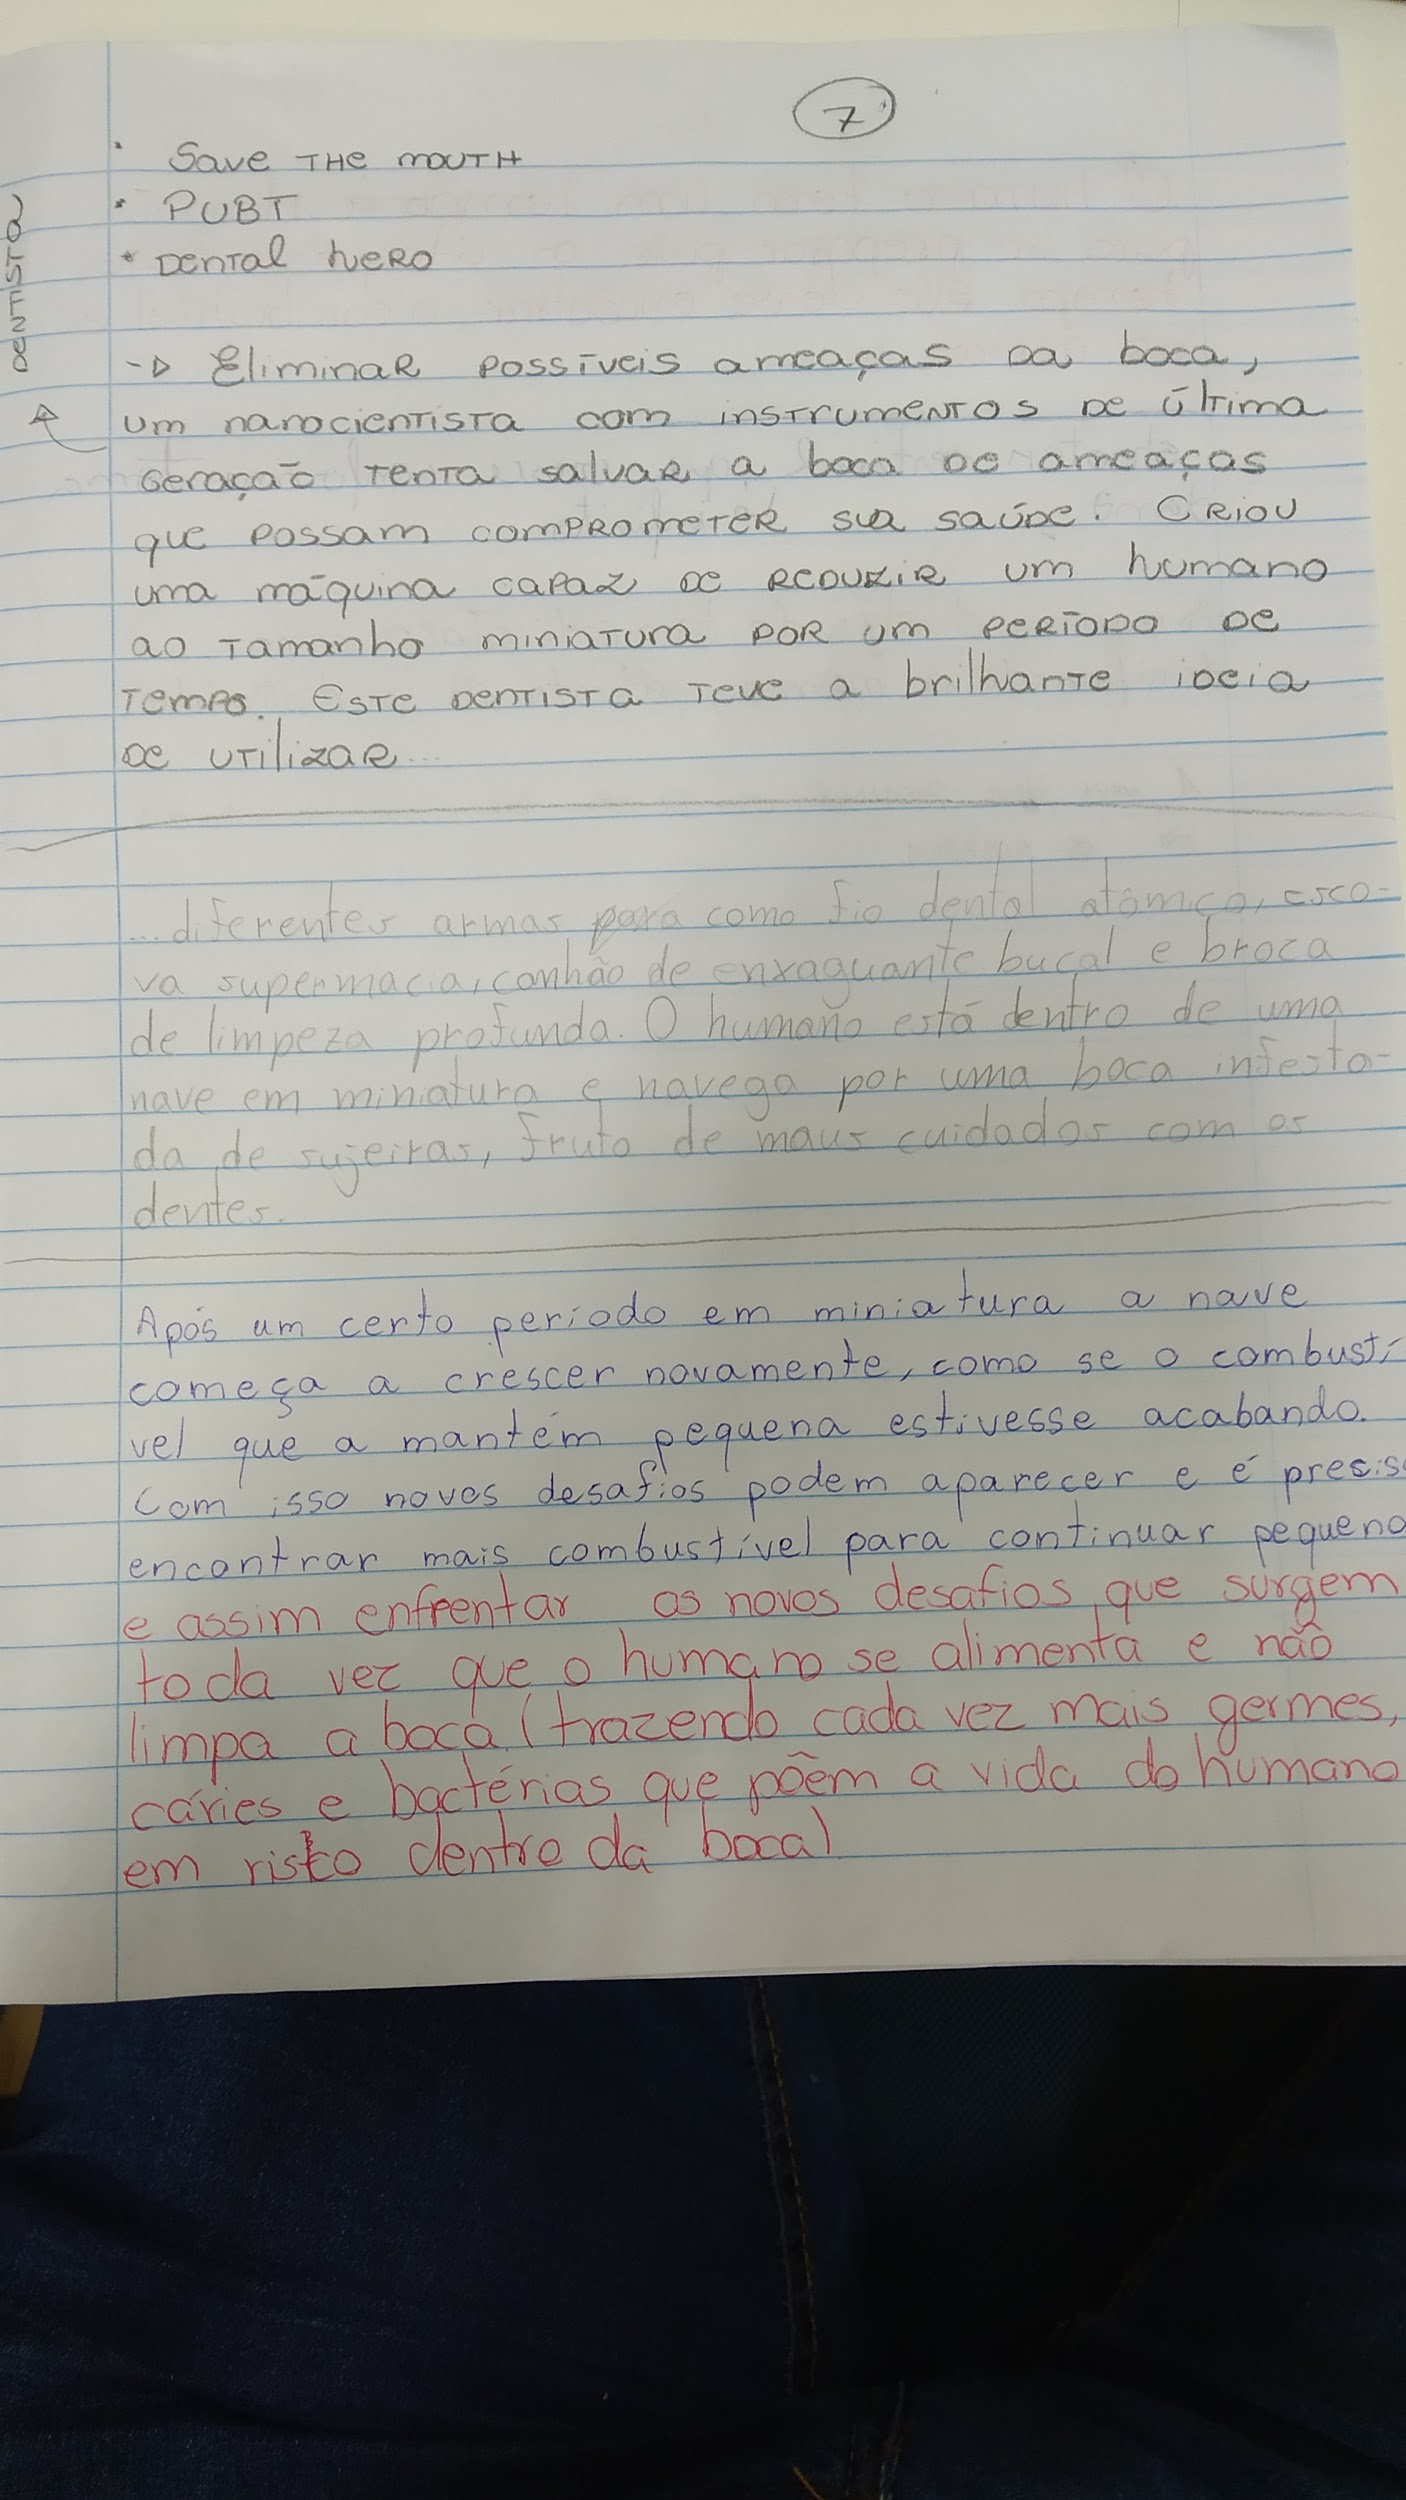 7
• Save THE MOUTH
• PUBT
• DENTAL HERO
DENTISTA
→ Eliminar possíveis ameaças da boca,
um nanocientista com instrumentos de última
geração tenta salvar a boca de ameaças
que possam comprometer sua saúde. Criou
uma máquina capaz de reduzir um humano
ao tamanho miniatura por um período de
tempo. Este dentista teve a brilhante ideia
de utilizar...
...diferentes armas para como fio dental atômico, esco-
va supermacia, canhão de enxaguante bucal e broca
de limpeza profunda. O humano está dentro de uma
nave em miniatura e navega por uma boca infesta-
da de sujeiras, fruto de maus cuidados com os
dentes.
Após um certo período em miniatura a nave
começa a crescer novamente, como se o combustí
vel que a mantém pequena estivesse acabando.
Com isso novos desafios podem aparecer e é preciso
encontrar mais combustível para continuar pequeno
e assim enfrentar os novos desafios que surgem
toda vez que o humano se alimenta e não
limpa a boca (trazendo cada vez mais germes,
cáries e bactérias que põem a vida do humano
em risco dentro da boca)